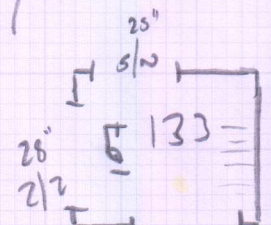 25"
S/N
133
28"
2/2